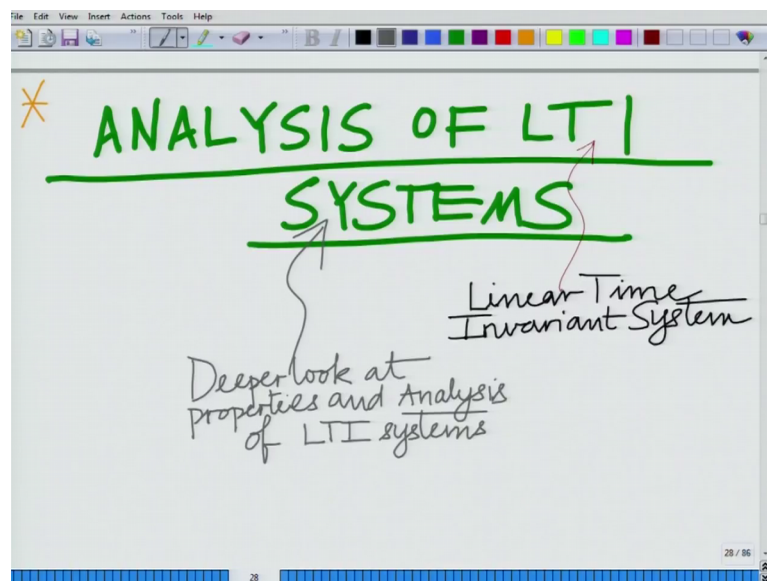 File Edit View Insert Actions Tools Help
B I
* ANALYSIS OF LTI
SYSTEMS
Linear Time
Invariant System
Deeper look at
properties and Analysis
of LTI systems
28 / 86
28